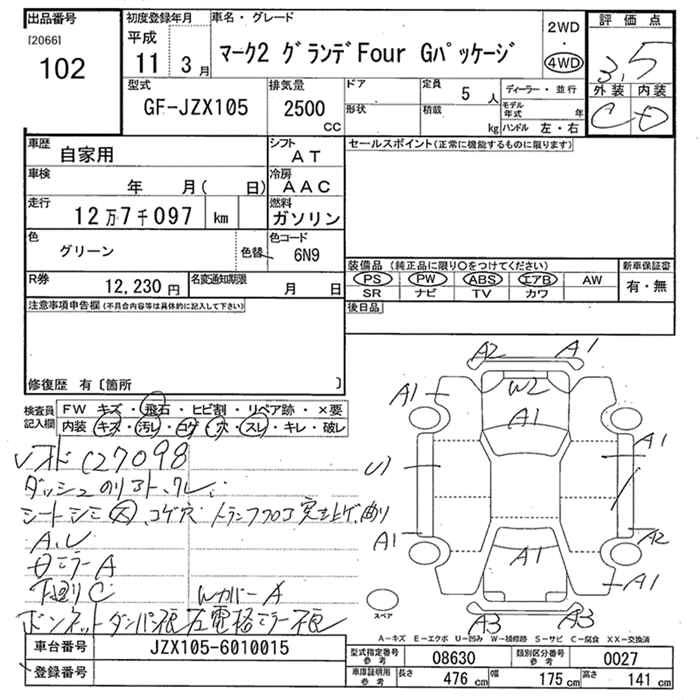 出品番号
[2066]
102
初度登録年月
平成
11 3月
車名・グレード
マーク2 グランデFour Gパッケージ
2WD
・
4WD
評価点
3.5
外装 内装
C D
型式
GF-JZX105
排気量
2500
CC
ドア
形状
定員
5人
積載
kg
ディーラー・並行
モデル年式 年
ハンドル 左・右
車歴
自家用
シフト
AT
車検
年 月( 日)
冷房
AAC
走行
12万7千097 km
燃料
ガソリン
色
グリーン
色替
色コード
6N9
R券
12,230円
名変通知期限
月 日
セールスポイント(正常に機能するものに限ります)
装備品 (純正品に限り○をつけてください)
新車保証書
PS PW ABS エアB AW
SR ナビ TV カワ
有・無
後日品
注意事項申告欄(不具合内容等は具体的に記入して下さい)
修復歴 有〔箇所 〕
検査員記入欄
FW キズ・飛石・ヒビ割・リペア跡・×要
内装 キズ・汚レ・コゲ・穴・スレ・キレ・破レ
C27098
シートシミ大、コゲ穴
トランクフロア突き上げ、曲り
ミラーA
下廻りC
WカバーA
ボンネットダンパ
左電格ミラー
A2 A1
W2
A1
A1
A1
U1
A1
A2
A1
A1
A3 A3
スペア
A-キズ E-エクボ U-凹み W-補修跡 S-サビ C-腐食 XX-交換済
車台番号
JZX105-6010015
登録番号
型式指定番号 参考
08630
類別区分番号 参考
0027
車庫証明用 参考
長さ 476 cm
幅 175 cm
高さ 141 cm